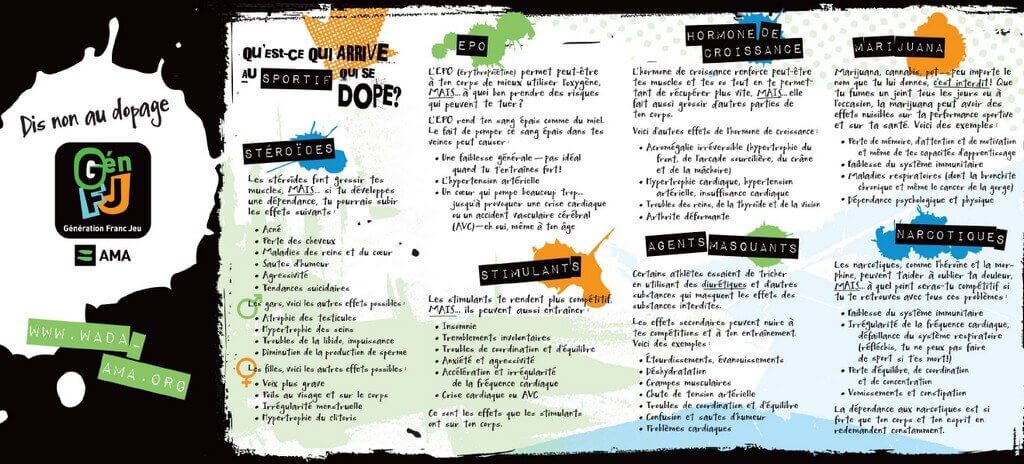 Dis non au dopage
Gén
FJ
Génération Franc Jeu
AMA
WWW.WADA_
AMA.ORG
QU'EST-CE QUI ARRIVE
AU SPORTIF QUI SE
DOPE?
STÉROÏDES
Les stéroïdes font grossir tes
muscles, MAIS... si tu développes
une dépendance, tu pourrais subir
les effets suivants :
• Acné
• Perte des cheveux
• Maladies des reins et du cœur
• Sautes d'humeur
• Agressivité
• Tendances suicidaires
Les gars, voici les autres effets possibles :
• Atrophie des testicules
• Hypertrophie des seins
• Troubles de la libido, impuissance
• Diminution de la production de sperme
Les filles, voici les autres effets possibles :
• Voix plus grave
• Poils au visage et sur le corps
• Irrégularité menstruelle
• Hypertrophie du clitoris
EPO
L'EPO (érythropoïétine) permet peut-être
à ton corps de mieux utiliser l'oxygène,
MAIS... à quoi bon prendre des risques
qui peuvent te tuer ?
L'EPO rend ton sang épais comme du miel.
Le fait de pomper ce sang épais dans tes
veines peut causer :
• Une faiblesse générale — pas idéal
quand tu t'entraîne fort !
• L'hypertension artérielle
• Un cœur qui pompe beaucoup trop...
jusqu'à provoquer une crise cardiaque
ou un accident vasculaire cérébral
(AVC) — eh oui, même à ton âge
STIMULANTS
Les stimulants te rendent plus compétitif,
MAIS... ils peuvent aussi entraîner :
• Insomnie
• Tremblements involontaires
• Troubles de coordination et d'équilibre
• Anxiété et agressivité
• Accélération et irrégularité
de la fréquence cardiaque
• Crise cardiaque ou AVC
Ce sont les effets que les stimulants
ont sur ton corps.
HORMONE DE
CROISSANCE
L'hormone de croissance renforce peut-être
tes muscles et tes os tout en te permet-
tant de récupérer plus vite, MAIS... elle
fait aussi grossir d'autres parties de
ton corps.
Voici d'autres effets de l'hormone de croissance :
• Acromégalie irréversible (hypertrophie du
front, de l'arcade sourcilière, du crâne
et de la mâchoire)
• Hypertrophie cardiaque, hypertension
artérielle, insuffisance cardiaque
• Troubles des reins, de la thyroïde et de la vision
• Arthrite déformante
AGENTS MASQUANTS
Certains athlètes essaient de tricher
en utilisant des diurétiques et d'autres
substances qui masquent les effets des
substances interdites.
Les effets secondaires peuvent nuire à
tes compétitions et à ton entraînement.
Voici des exemples :
• Étourdissements, évanouissements
• Déshydratation
• Crampes musculaires
• Chute de tension artérielle
• Troubles de coordination et d'équilibre
• Confusion et sautes d'humeur
• Problèmes cardiaques
MARIJUANA
Marijuana, cannabis, pot — peu importe le
nom que tu lui donnes, c'est interdit ! Que
tu fumes un joint tous les jours ou à
l'occasion, la marijuana peut avoir des
effets nuisibles sur ta performance sportive
et sur ta santé. Voici des exemples :
• Perte de mémoire, d'attention et de motivation
et même de tes capacités d'apprentissage
• Faiblesse du système immunitaire
• Maladies respiratoires (dont la bronchite
chronique et même le cancer de la gorge)
• Dépendance psychologique et physique
NARCOTIQUES
Les narcotiques, comme l'héroïne et la mor-
phine, peuvent t'aider à oublier ta douleur,
MAIS... à quel point seras-tu compétitif si
tu te retrouves avec tous ces problèmes :
• Faiblesse du système immunitaire
• Irrégularité de la fréquence cardiaque,
défaillance du système respiratoire
(réfléchis, tu ne peux pas faire
de sport si t'es mort !)
• Perte d'équilibre, de coordination
et de concentration
• Vomissements et constipation
La dépendance aux narcotiques est si
forte que ton corps et ton esprit en
redemandent constamment.